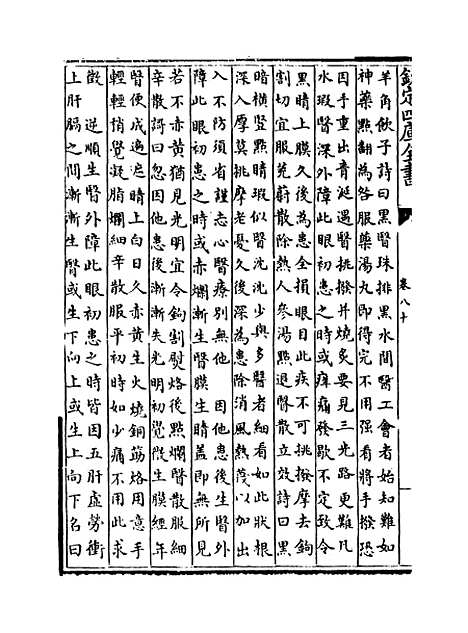 欽定四庫全書
卷八十
羊角飲子詩曰黑翳珠排黑水間醫工會者始知難如
神藥點翻為咎服藥湯丸即得完不用强看將手撥恐
因手重出青涎遇醫挑撥并燒灸要見三光路更難凡
水瑕翳深外障此眼初患之時或痒痛發歇不定致令
黑睛上膜久後為患全損眼目此疾不可挑撥摩去鉤
割切宜服芫蔚散除熱人參湯點退翳散立效詩曰黑
暗橫豎點睛瑕似翳沈沈少與多翳者細看如此狀根
深入厚莫挑摩老憂久後深為患除消風熱莪以加出
入不防須省謹志心醫療别無他　因他患後生翳外
障此眼初患之時或赤爛漸生翳膜生睛盖即無所見
若不赤黄猶見光明宜令鉤割熨烙後點爛翳散服細
辛散詩曰忽因他患後漸漸失光明初覺微生膜經年
翳便成遍遮睛上白日久赤黄生火燒銅筯烙用意手
輕輕悄覺凝脂爛細辛散服平初時如少痛不用此求
徵　逆順生翳外障此眼初患之時皆因五肝虛勞衝
上肝膈之間漸漸生翳或生下向上或生上向下名曰